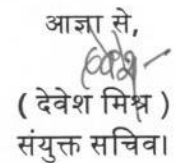 आज्ञा से,
( देवेश मिश्र )
संयुक्त सचिव।